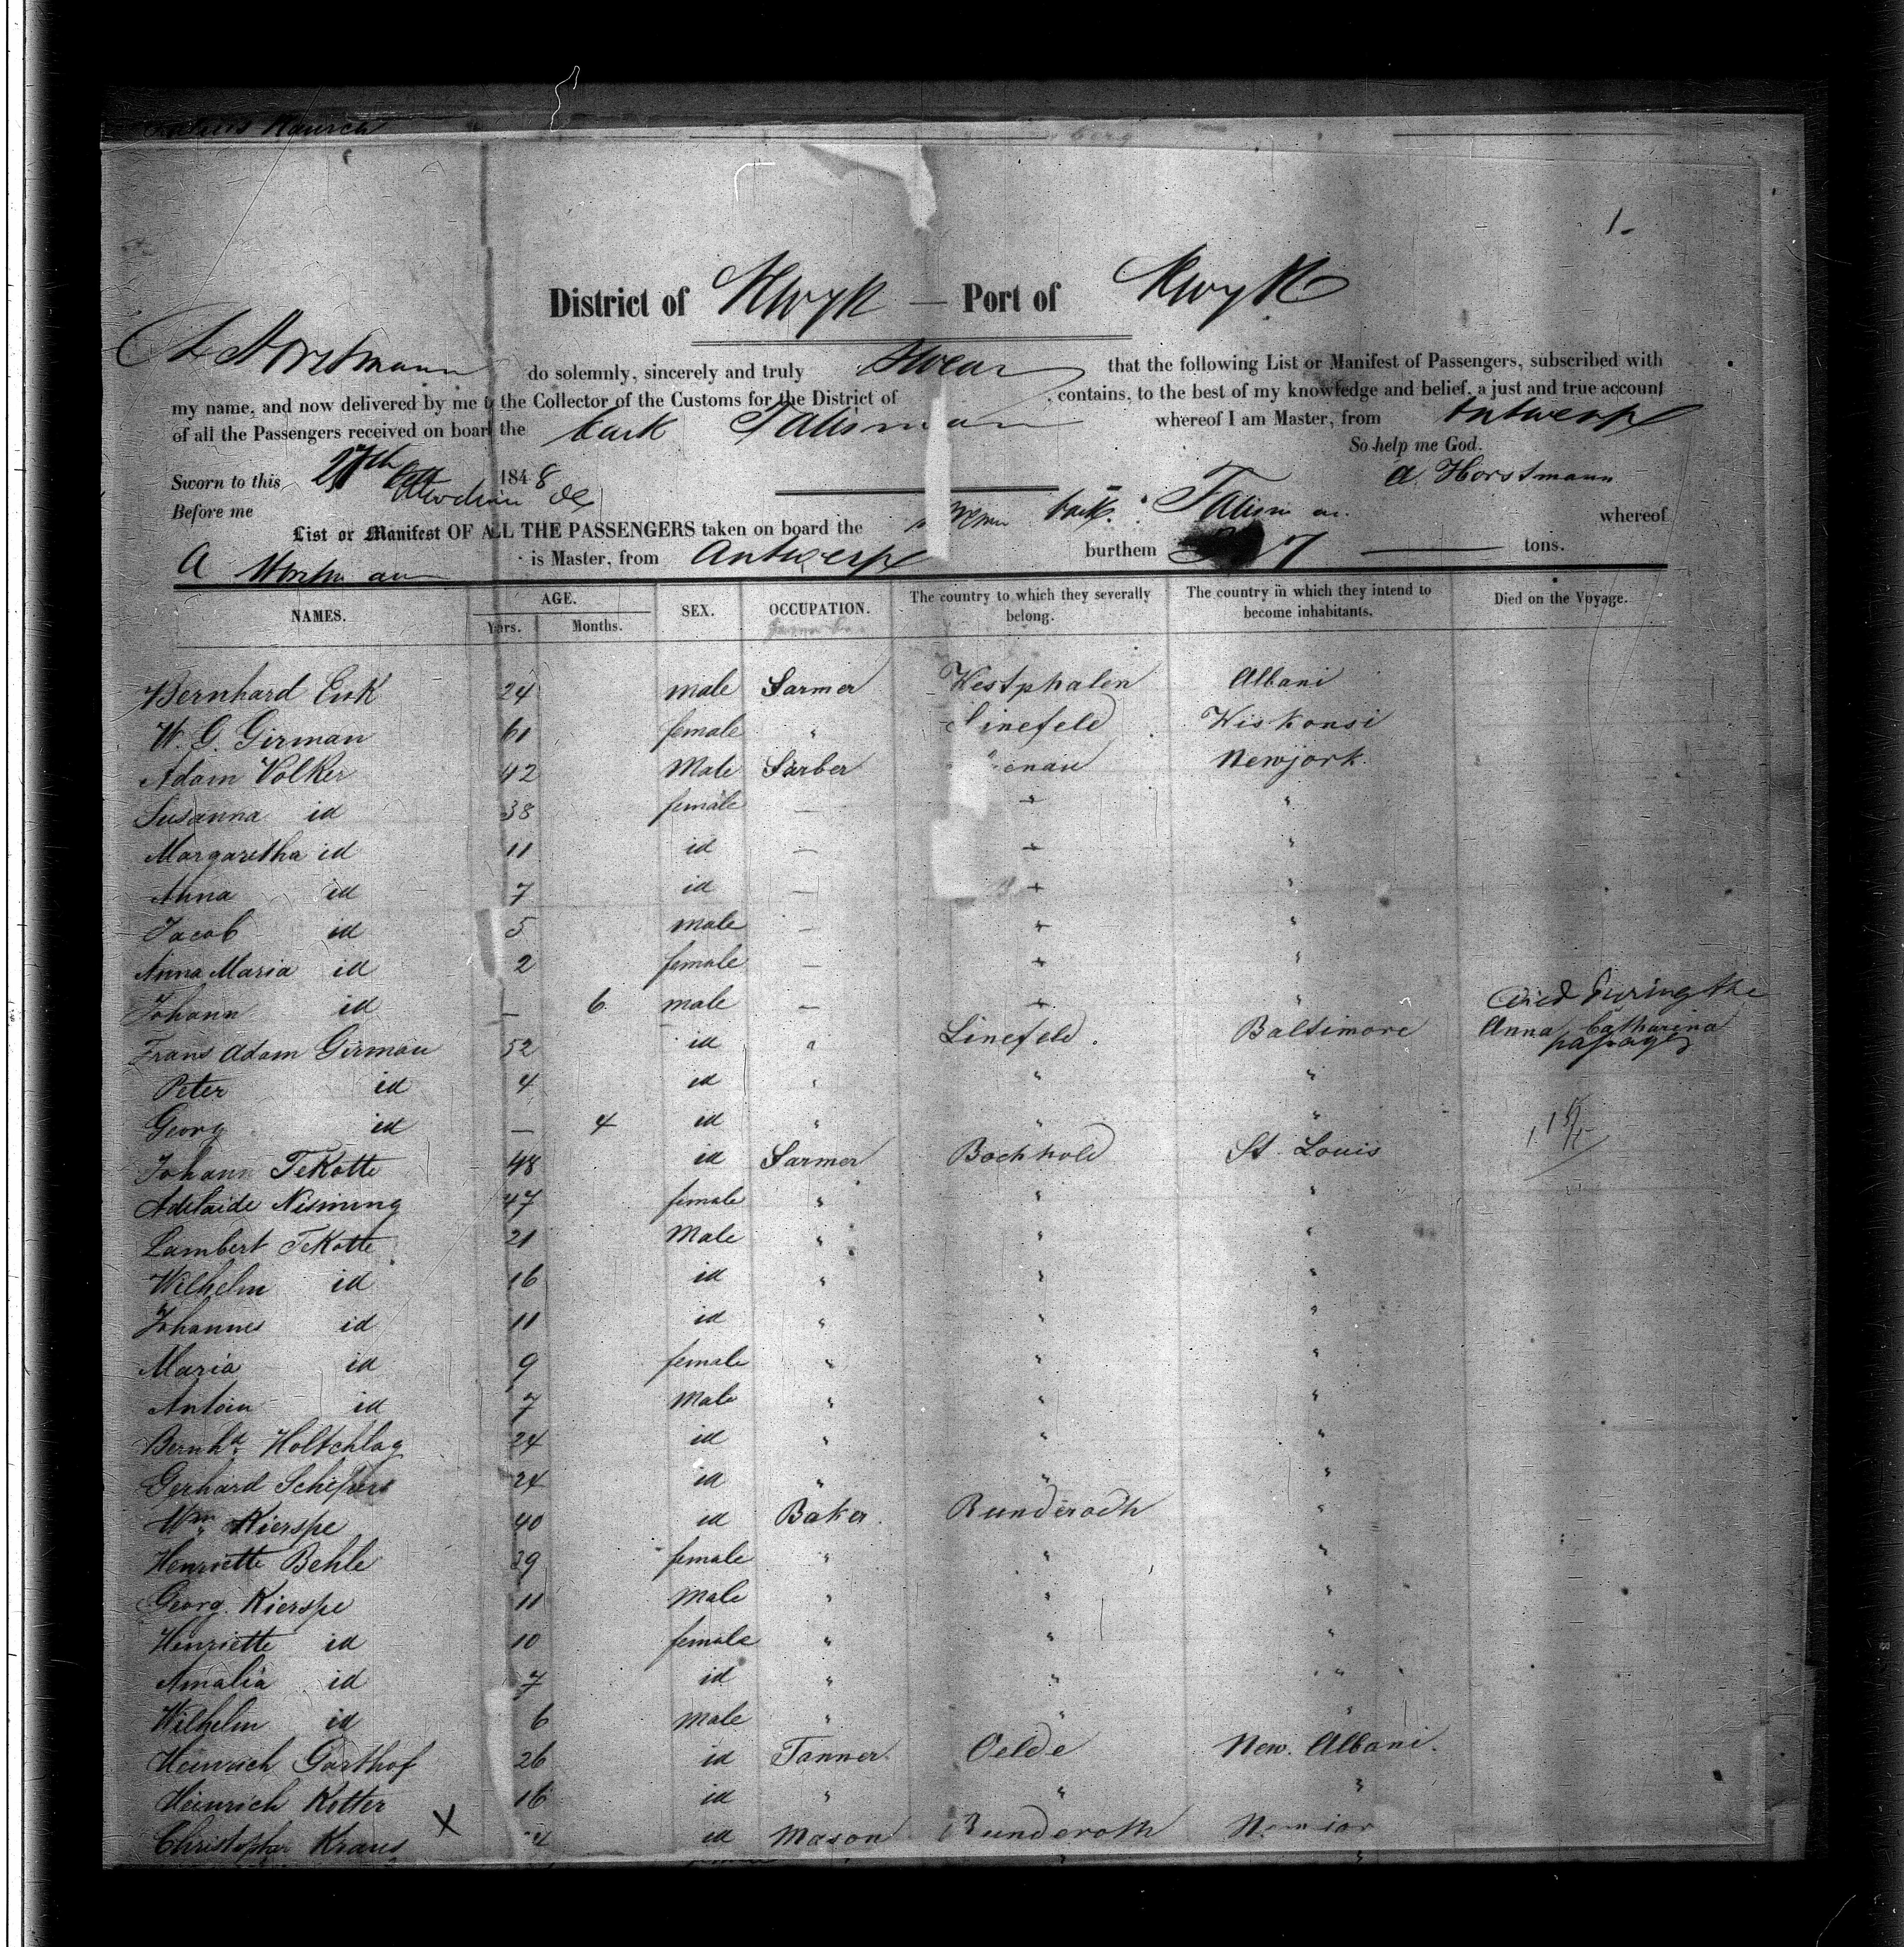 1-
District of NewyK — Port of NewyK
A Horstmann do solemnly, sincerely and truly Swear that the following List or Manifest of Passengers, subscribed with
my name, and now delivered by me to the Collector of the Customs for the District of , contains, to the best of my knowledge and belief, a just and true account
of all the Passengers received on board the bark Talisman whereof I am Master, from Antwerp
So help me God.
Sworn to this 27th Oct 1848 A Horstmann
Before me
List or Manifest OF ALL THE PASSENGERS taken on board the bark Talisman whereof
A Horstmann is Master, from Antwerp burthem tons.
NAMES. AGE. SEX. OCCUPATION. The country to which they severally belong. The country in which they intend to become inhabitants. Died on the Voyage.
Years. Months.
Bernhard 24 male Farmer Westphalen Albani
W. G. Girman 61 female " Linefeld Wiskonsi
Adam Volker 42 Male Farber enau Newjork.
Susanna id 38 female — " "
Margaretha id 11 id — " "
Anna id 7 id — " "
Jacob id 5 male — " "
Anna Maria id 2 female — " "
Johann id — 6 male — " " died During the
Frans Adam Girman 52 id " Linefeld. Baltimore Anna Catharina passage
Peter id 4 id " " "
Georg id — 4 id " " "
Johann TeKotte 48 id Farmer Bochhold St. Louis
Adelaide Nisming 47 female " " "
Lambert TeKotte 21 Male " " "
Wilhelm id 16 id " " "
Johannes id 11 id " " "
Maria id 9 female " " "
Antoin id 7 Male " " "
Bernhd Holtchlag 24 id " " "
Gerhard Schepers 24 id " " "
Wm Kierspe 40 id Baker. Runderodh "
Henriette Behle 39 female " " "
Georg. Kierspe 11 Male " " "
Henriette id 10 female " " "
Amalia id 7 id " " "
Wilhelm id 6 Male " " "
Heinrich Gosthof 26 id Tanner. Oelde New. Albani.
Heinrich Kotter 16 id " " "
Christopher Kraus X 4 id Mason Runderoth